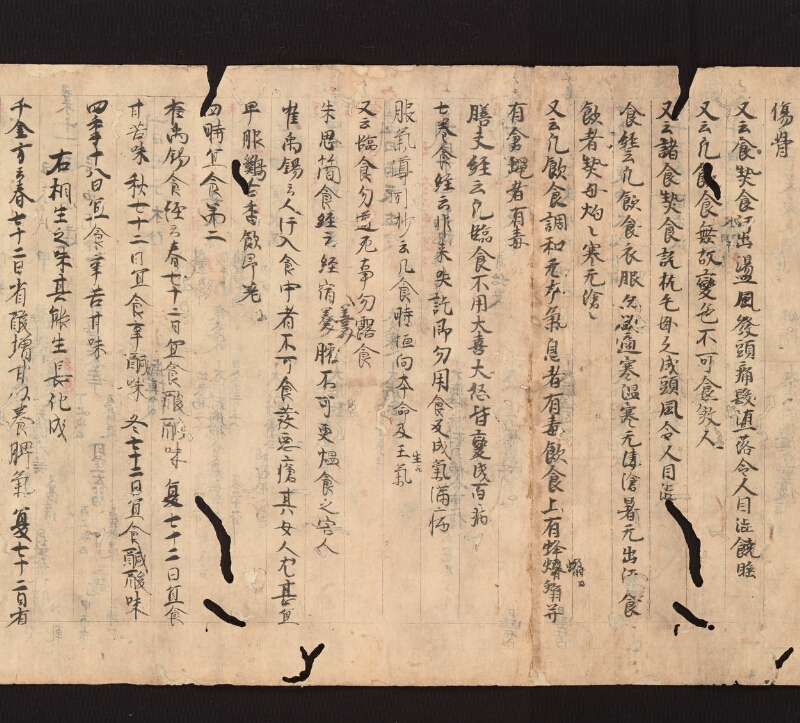 傷骨
又云食熱食汗出盪風發頭痛髮堕落令人目澁饒睡
又云凡飲食無故變色不可食煞人
又云諸食熱食訖枕手卧久成頭風令人目澁
食経云凡飲食衣服忽欲適寒温寒无凄滄暑无出汗食
飲者熱毋灼〻寒无滄〻
又云凡飲食調和无本氣息者有毒飲食上有蜂蠐螬并
有倉蠅者有毒
膳夫経云凡臨食不用大喜大怒皆變成百病
七巻食経云非夫哭訖即勿用食反成氣満病
服氣噂列抄云凡食時恒向本命及王氣
又云臨食勿道死事勿露食
朱思簡食経云経宿羹臛不可更熅食之害人
崔禹錫云人汗入食中者不可食發悪瘡其女人尤甚宜
早服鷄舌香飲即差
四時宜食第二
崔禹錫食経云春七十二日宜食酸鹹味 夏七十二日宜食
甘苦味 秋七十二日宜食辛鹹味 冬七十二日宜食鹹酸味
四季十八日宜食辛苦甘味
右相生之味其能生長化成
千金方云春七十二日省酸増甘以養脾氣 夏七十二日省